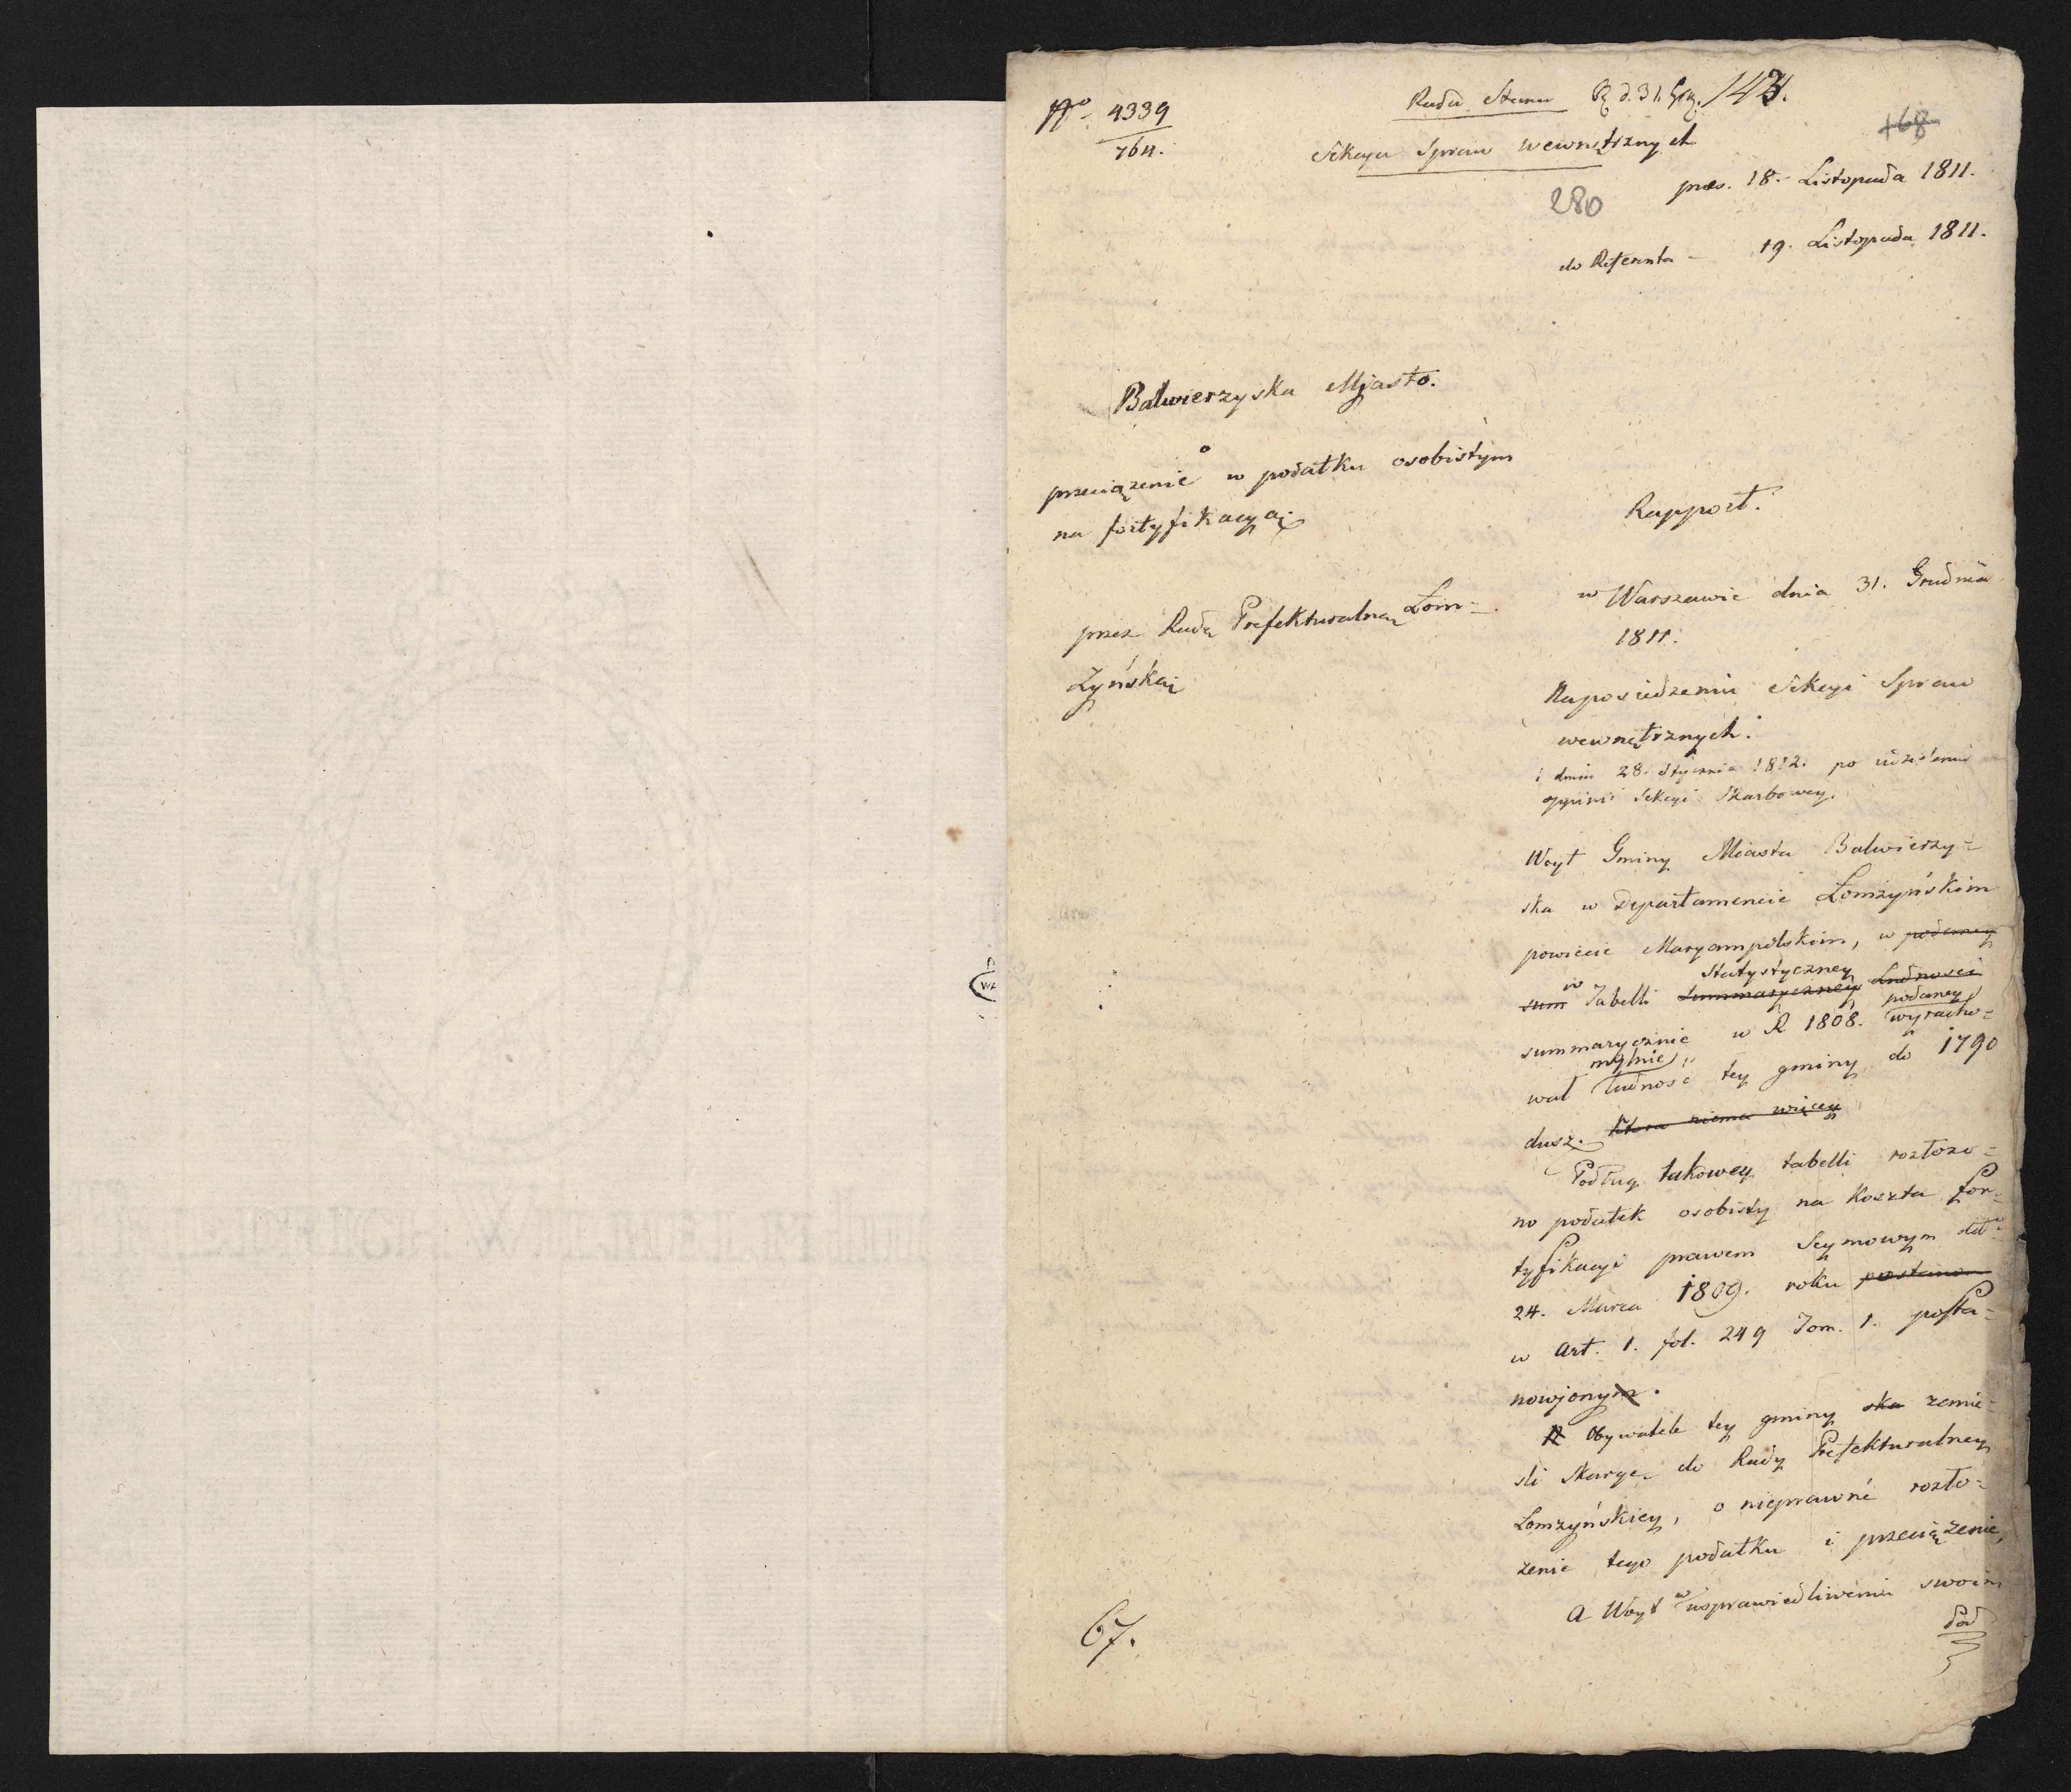 No. 4339
764.
Rada Stanu d. 31. 143.
Sekcya Spraw wewnętrznych
168
280
præs. 18. Listopada 1811.
do Referenta – 19. Listopada 1811.
Balwierzyska Mjasto.
o
przeciążenie w podatku osobistym
na fortyfikacyą
przez Radę Prefekturalną Łom=
żyńską
Rapport.
w Warszawie dnia 31. Grudnia
1811.
Na posiedzeniu Sekcyi Spraw
wewnętrznych.
i dnia 28. Stycznia 1812. po udzieleniu
oppinii Sekcyi Skarbowey.
Woyt Gminy Miasta Balwierzy=
ska w Departamencie Łomżyńskim
powiecie Maryampolskim, w podaney
sum w Tabelli Summaryczney Statystyczney Ludności
summarycznie w R 1808. podaney wyracho=
wał mylnie ludność tey gminy do 1790
dusz. ktora niema więcey
Podług takowey tabelli rozłożo=
no podatek osobisty na koszta for=
tyfikacyi prawem Seymowym dtt
24. Marca 1809. roku postanow
w Art. 1. fol. 249 Tom. 1. posta=
nowjonym.
Obywatele tey gminy ska zanie=
śli skargę do Rady Prefekturalney
Łomżyńskiey, o nieprawne rozło=
żenie tego podatku i przeciążenie,
A Woyt w usprawiedliwieniu swoim
Pod
67.
WA